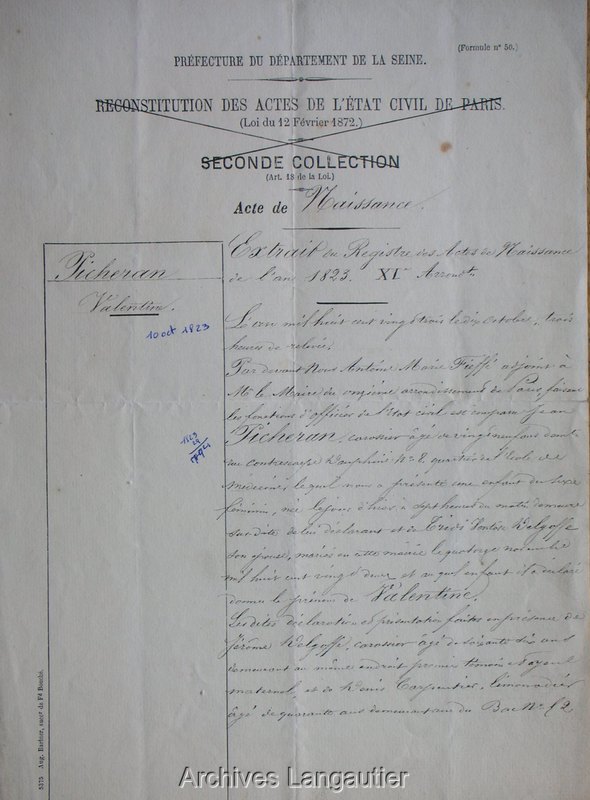 (Formule nº 50.)
PRÉFECTURE DU DÉPARTEMENT DE LA SEINE.
RECONSTITUTION DES ACTES DE L'ÉTAT CIVIL DE PARIS.
(Loi du 12 Février 1872.)
SECONDE COLLECTION
(Art. 18 de la Loi.)
Acte de Naissance.
Picheran
Valentine.
10 oct 1823
1823
Extrait du Registre des Actes de Naissance
de l'an 1823. XIe Arrondt.
L'an mil huit cent vingt trois le dix octobre, trois
heures de relevée,
Par devant Nous Antoine Marie Fieffé adjoint à
M. le Maire du onzième arrondissement de Paris, faisant
les fonctions d'officier de l'état civil est comparu Jean
Picheran, carossier âgé de vingt neuf ans demt
rue contrescarpe Dauphine Nº 8 quartier de l'école de
médecine, lequel nous a présenté une enfant du sexe
féminin, née le jour d'hier à sept heures du matin demeure
sus date de lui déclarant et de Welgoffe
son épouse, mariés en cette mairie le quatorze novembre
mil huit cent vingt deux et auquel enfant il a déclaré
donner le prénom de Valentine.
Lesdites déclaration et présentation faites en présence de
Jérôme Welgoffe, carossier âgé de soixante dix ans
demeurant au même endroit premier témoin et ayeul
maternel, et de Denis Carpentier, limonadier
âgé de quarante ans demeurant rue du Bac Nº 12
5375 Aug. Bartner, succr de Fd Bouché.
Archives Langautier